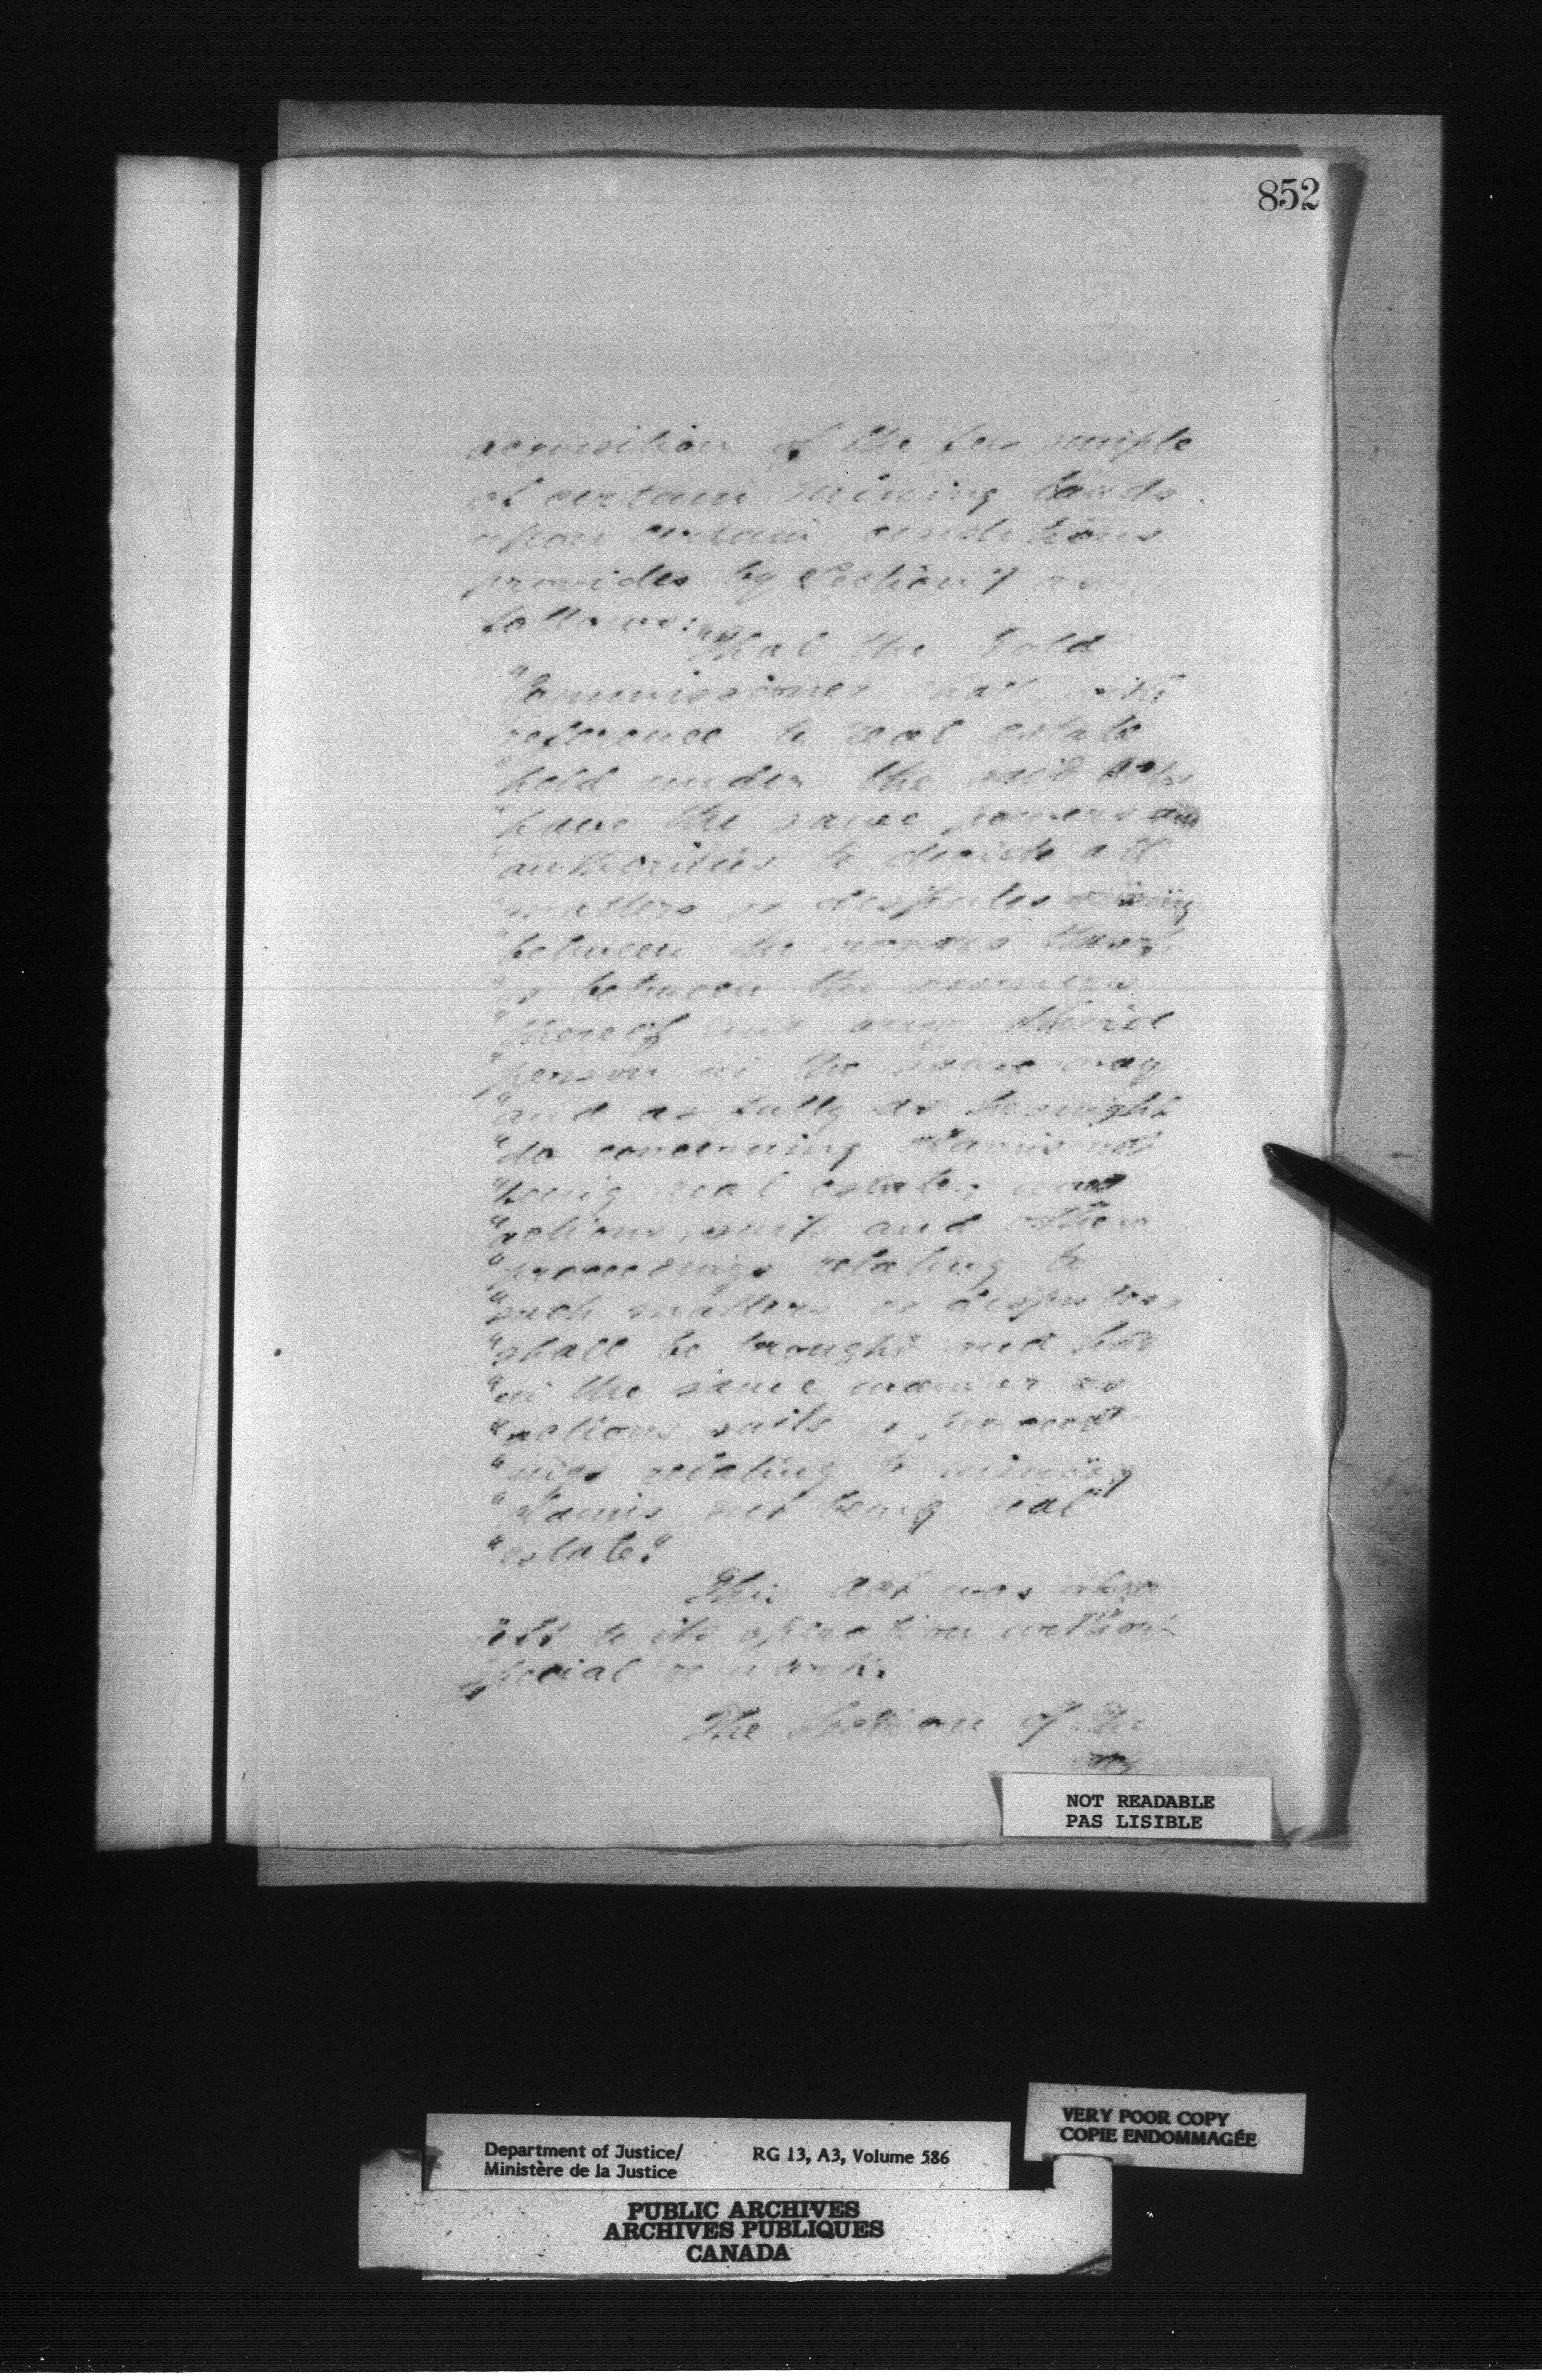 852
acquisition of the fee simple
of certain mining lands
upon certain conditions
provides by Section 7 as
follows:
"That the Gold
"Commissioner shall, with
"reference to real estate
"held under the said Acts
"have the same powers and
"authorities to decide all
"matters or disputes arising
"between the owners thereof
"or between the owners
"thereof and any third
"person in the same way
"and as fully as he might
"do concerning claims not
"being real estate; and
"actions, suits and other
"proceedings relating to
"such matters or disputes
"shall be brought and had
"in the same manner as
"actions suits or proceed
"ings relating to mining
"claims not being real
"estate."
This Act was also
left to its operation without
special remark.
The Section of the
NOT READABLE
PAS LISIBLE
VERY POOR COPY
COPIE ENDOMMAGÉE
Department of Justice/
Ministère de la Justice
RG 13, A3, Volume 586
PUBLIC ARCHIVES
ARCHIVES PUBLIQUES
CANADA